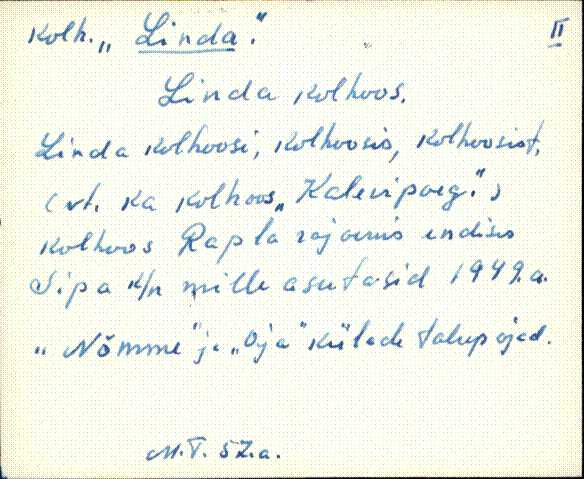 Kolh. „Linda". II
Linda kolhoos.
Linda kolhoosi, kolhoosis, kolhoosist,
(vt. ka kolhoos „Kalevipoeg".)
kolhoos Rapla rajoonis endisis
Sipa k/n mille asutasid 1949.a.
„Nõmme" ja „Oja" külade talupojad.
M.T. 57.a.